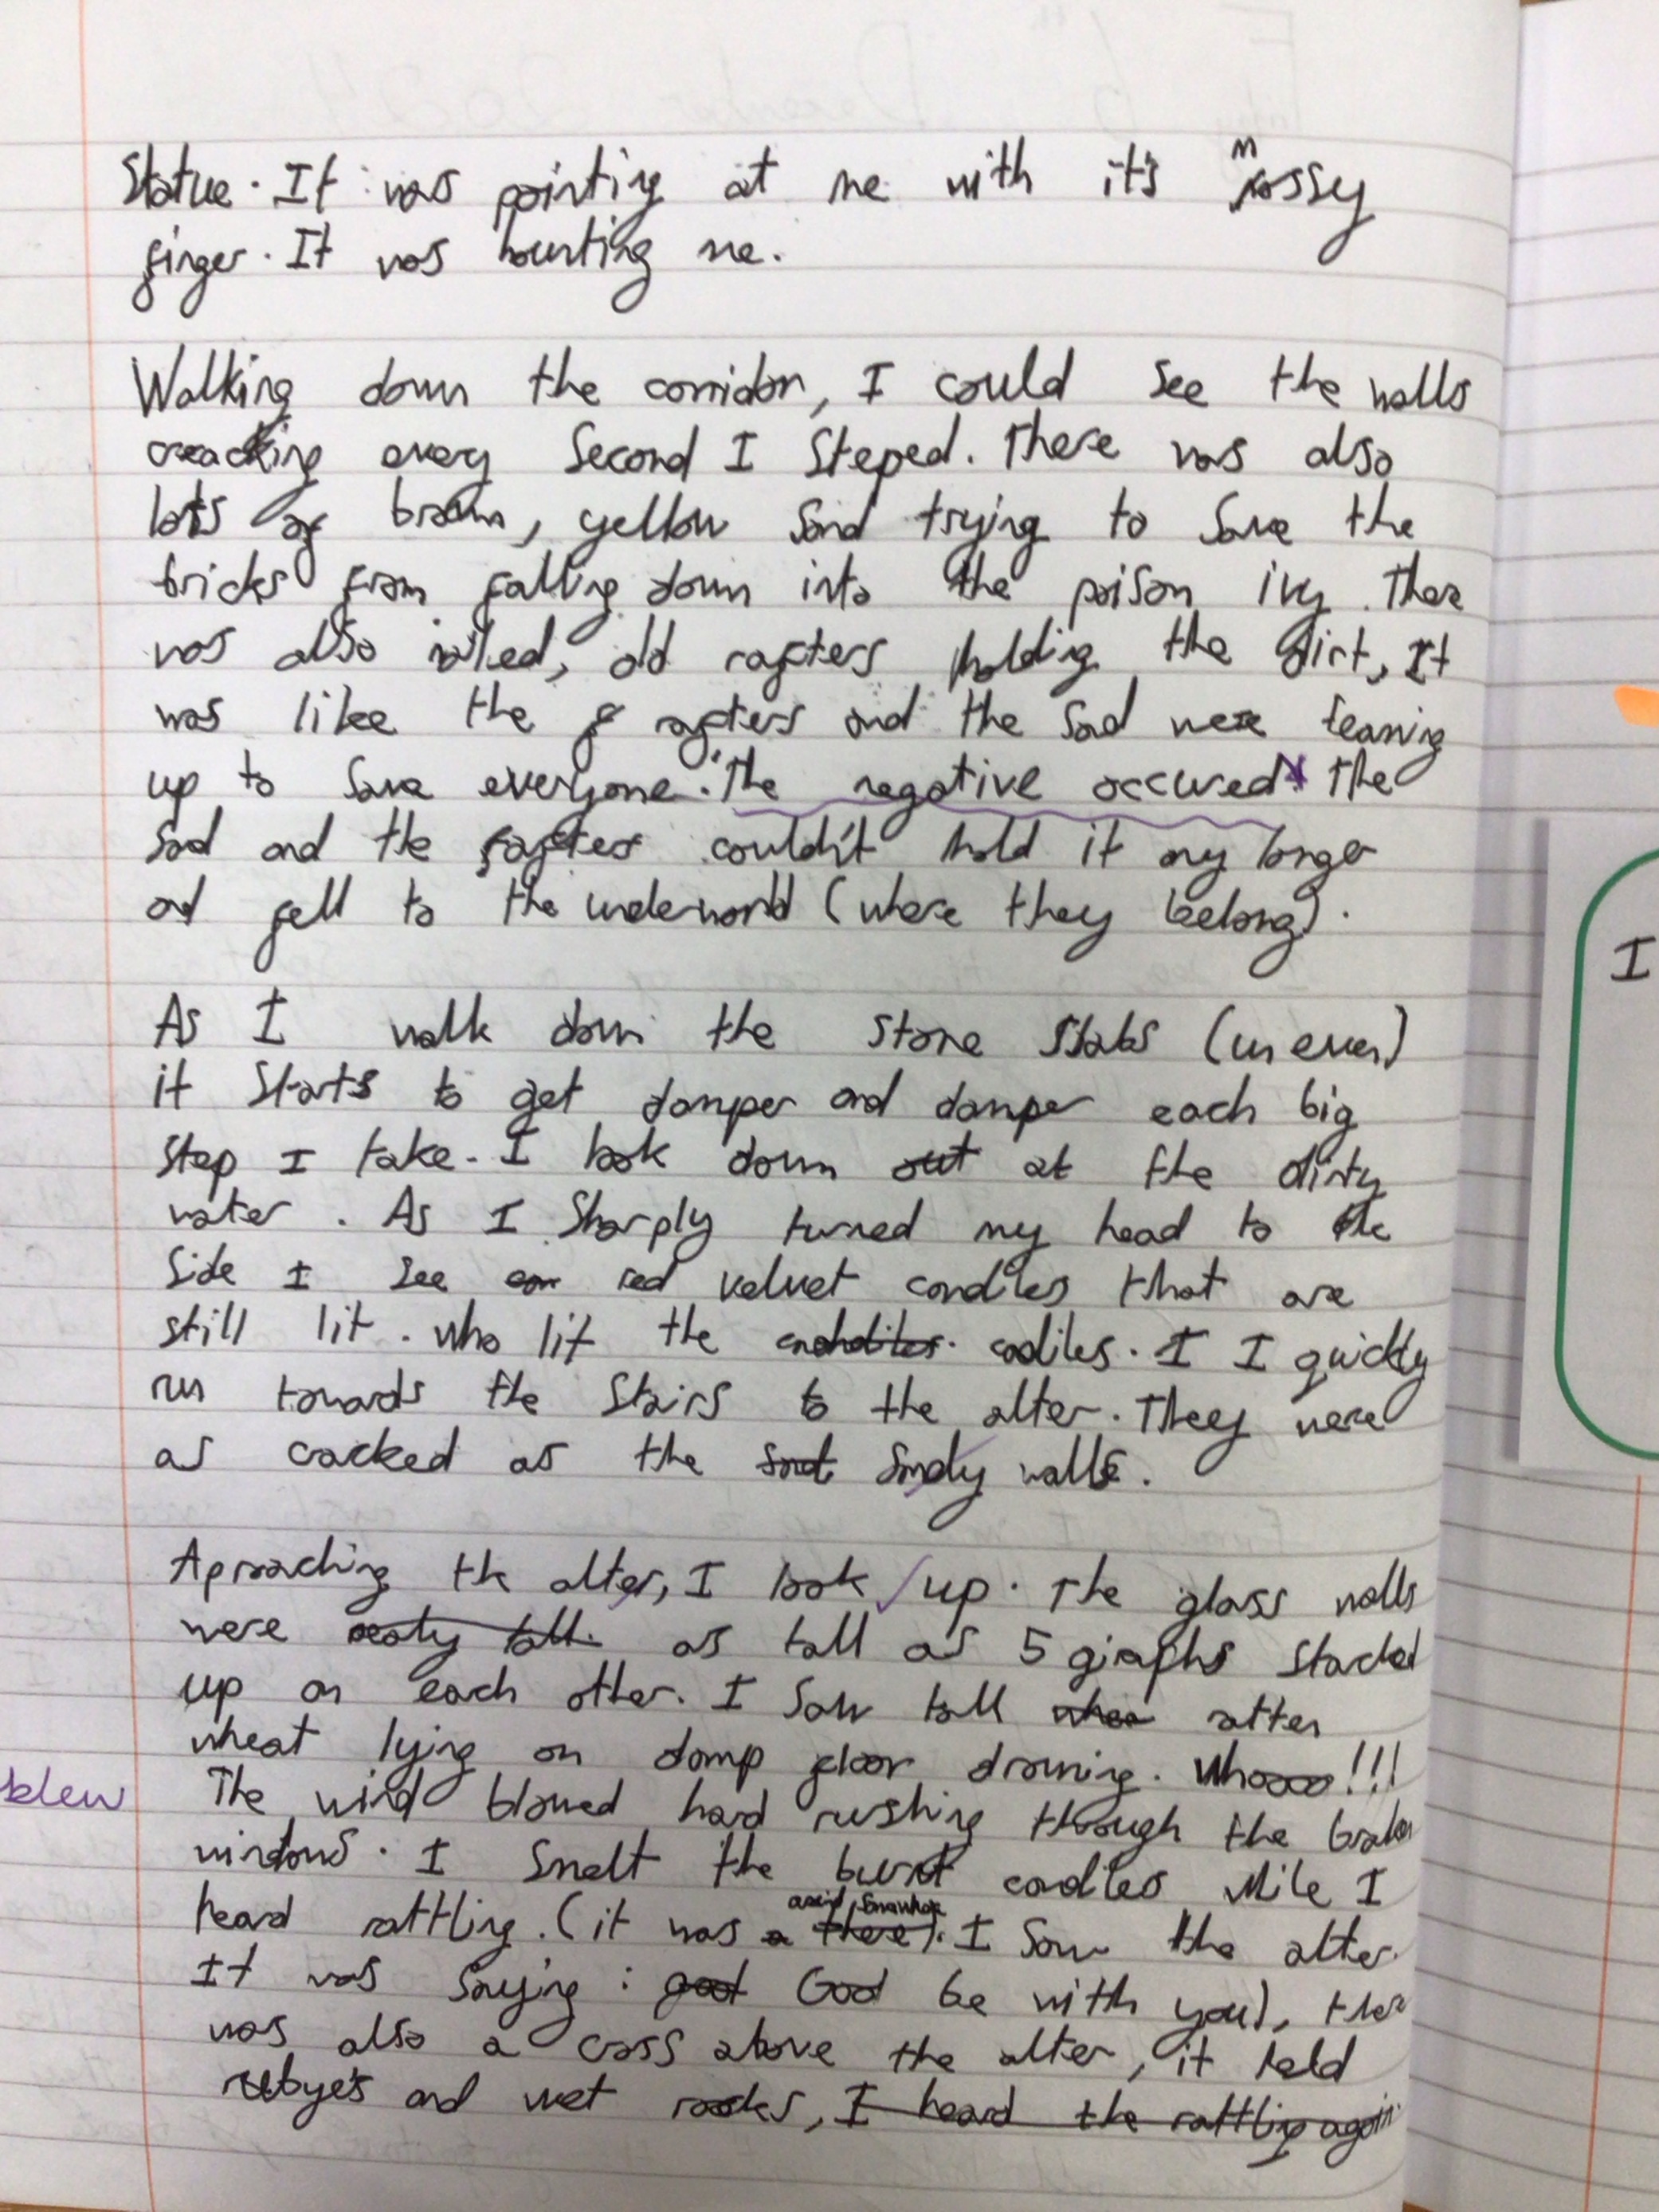 Statue. It was pointing at me with it's mossy
finger. It was hounting me.
Walking down the corridor, I could see the walls
creacking every Second I Steped. There was also
lots of brown, yellow sand trying to save the
bricks from falling down into the poison ivy. There
was also old rafters holding the dirt, It
was like the rafters and the Sad were teaming
up to save everyone. The negative occured* The
Sad and the rafters couldn't hold it any longer
and fell to the underworld (where they belong).
As I walk down the stone Slabs (un even)
it starts to get damper and damper each big
step I take. I look down out at the dirty
water. As I sharply turned my head to the
side I see red velvet candiles that are
still lit. who lit the candiles. I I quickly
run towards the stairs to the alter. They were
as cracked as the Sandy walls.
Aproaching the alter, I look up. The glass walls
were realy tall. as tall as 5 giraphs stacked
up on each other. I saw tall rotten
wheat lying on damp floor drowning. Whoooo!!!
blew
The wind blowed hard rushing through the broken
windows. I smelt the burnt candiles while I
heard rattling. (it was a there). I saw the alter.
It was saying: god God be with you), there
was also a cross above the alter, it held
rubye's and wet rocks, I heard the rattling again.
I